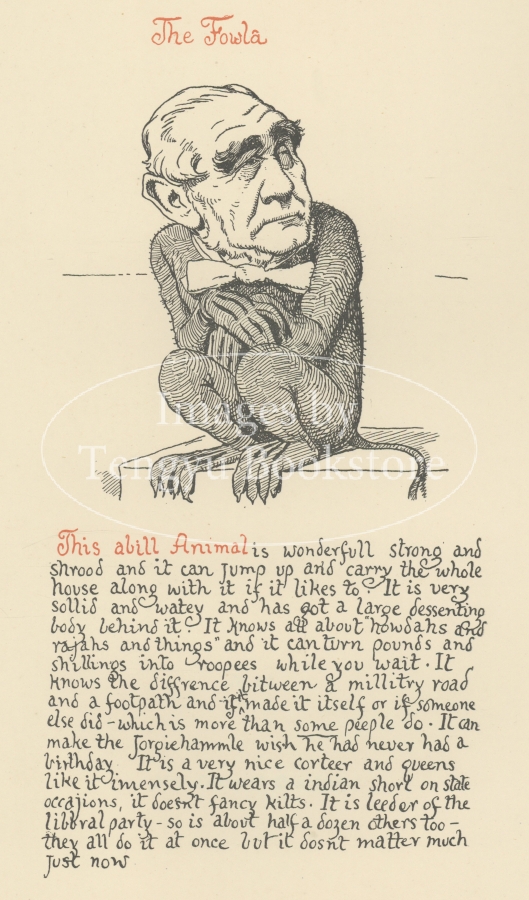 The Fowla
Images by
Tengyu Bookstore
This abill Animal is wonderfull strong and
shrood and it can jump up and carry the whole
house along with it if it likes to. It is very
sollid and watey and has got a large dessenting
body behind it. It knows all about "howdahs and
rajahs and things" and it can turn pounds and
shillings into roopees while you wait. It
knows the diffrence bitween a millitry road
and a footpath and if it made it itself or if someone
else did - which is more than some peeple do. It can
make the Jorgiehammle wish he had never had a
birthday. It is a very nice corteer and queens
like it imensely. It wears a indian shorl on state
occajions, it doesn't fancy kilts. It is leeder of the
libbral party - so is about half a dozen others too -
they all do it at once but it dosnt matter much
just now